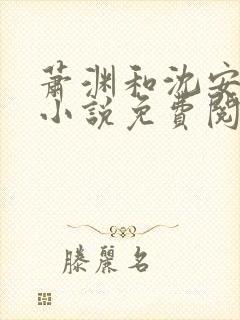 蕭渊和沈安
小説免費閱
滕麗名